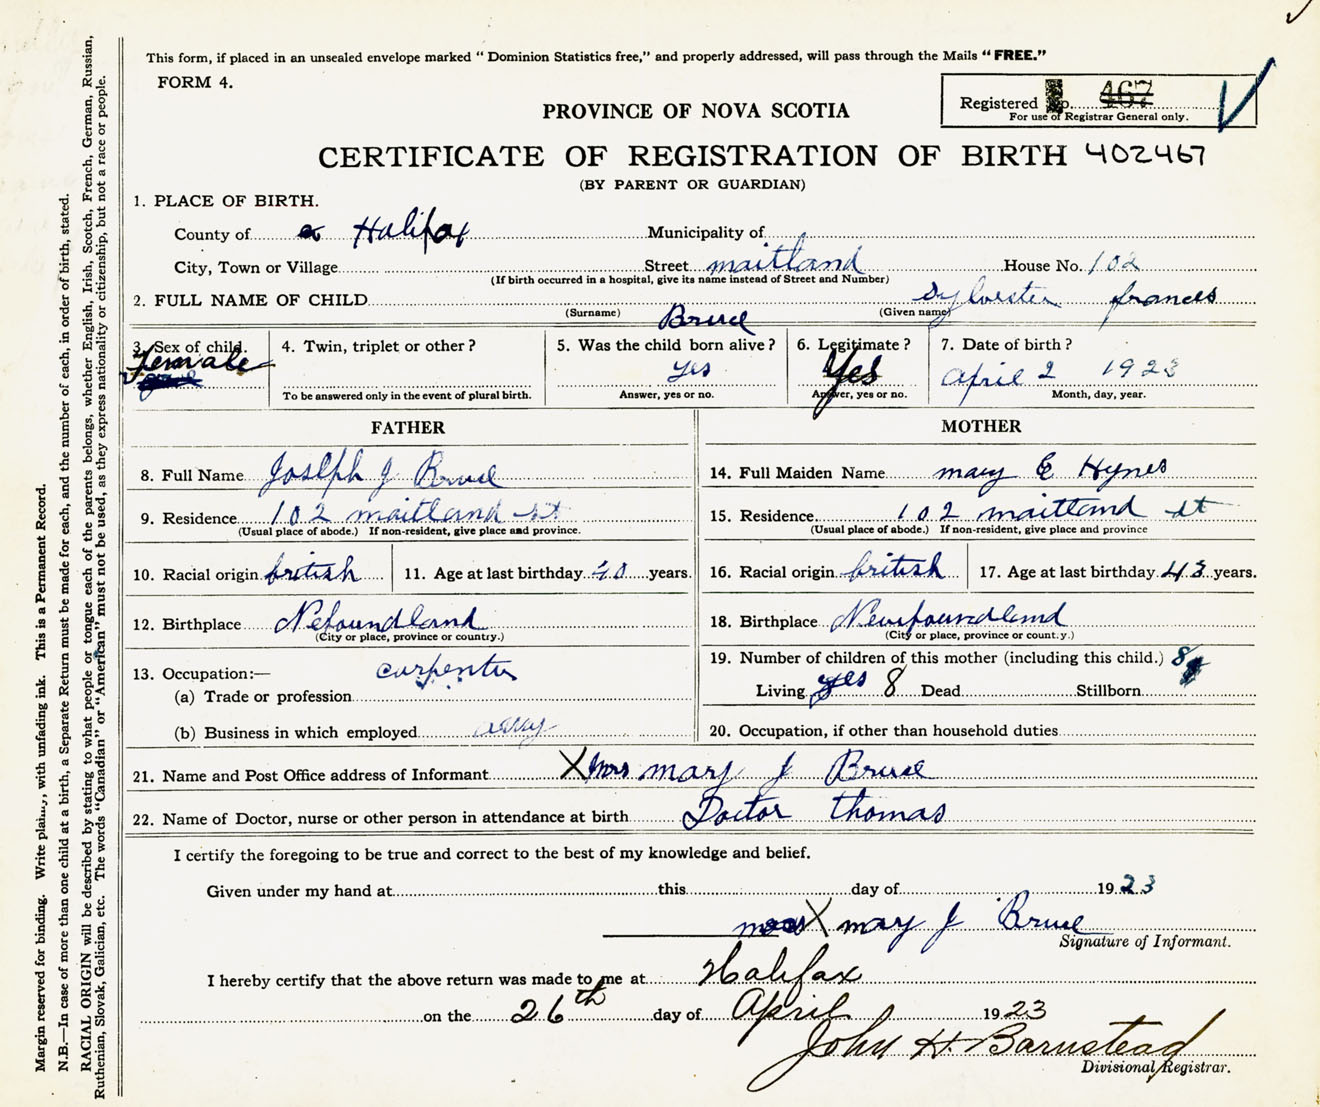 This form, if placed in an unsealed envelope marked "Dominion Statistics free," and properly addressed, will pass through the Mails "FREE."
FORM 4.
Registered No. 467
For use of Registrar General only.
PROVINCE OF NOVA SCOTIA
CERTIFICATE OF REGISTRATION OF BIRTH 402467
(BY PARENT OR GUARDIAN)
1. PLACE OF BIRTH.
County of Halifax Municipality of
City, Town or Village Street maitland House No. 102
(If birth occurred in a hospital, give its name instead of Street and Number)
2. FULL NAME OF CHILD Bruce Sylvester frances
(Surname) (Given name)
3. Sex of child. Female
4. Twin, triplet or other?
To be answered only in the event of plural birth.
5. Was the child born alive?
yes
Answer, yes or no.
6. Legitimate?
Yes
Answer, yes or no.
7. Date of birth?
April 2 1923
Month, day, year.
FATHER
8. Full Name Joseph J Bruce
9. Residence 102 maitland st
(Usual place of abode.) If non-resident, give place and province.
10. Racial origin british 11. Age at last birthday 40 years.
12. Birthplace Nefoundland
(City or place, province or country.)
13. Occupation:— carpenter
(a) Trade or profession
(b) Business in which employed
MOTHER
14. Full Maiden Name mary E Hynes
15. Residence 102 maitland st
(Usual place of abode.) If non-resident, give place and province
16. Racial origin british 17. Age at last birthday 43 years.
18. Birthplace Newfoundland
(City or place, province or country.)
19. Number of children of this mother (including this child.) 8
Living yes 8 Dead Stillborn
20. Occupation, if other than household duties
21. Name and Post Office address of Informant X Mrs mary J Bruce
22. Name of Doctor, nurse or other person in attendance at birth Doctor thomas
I certify the foregoing to be true and correct to the best of my knowledge and belief.
Given under my hand at this day of 1923
X mary J Bruce
Signature of Informant.
I hereby certify that the above return was made to me at Halifax
on the 26th day of April 1923
John H. Barnstead
Divisional Registrar.
Margin reserved for binding. Write plainly, with unfading ink. This is a Permanent Record.
N.B.—In case of more than one child at a birth, a Separate Return must be made for each, and the number of each, in order of birth, stated.
RACIAL ORIGIN will be described by stating to what people or tongue each of the parents belongs, whether English, Irish, Scotch, French, German, Russian,
Ruthenian, Slovak, Galician, etc. The words "Canadian" or "American" must not be used, as they express nationality or citizenship, but not a race or people.